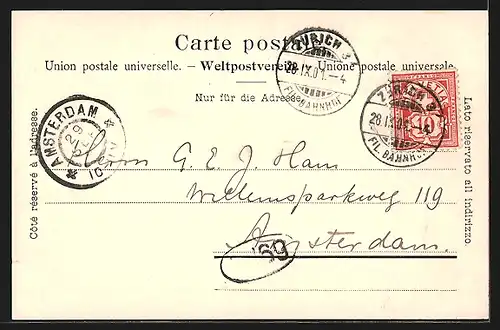 Carte postale.
Union postale universelle. – Weltpostverein. – Unione postale universale.
Nur für die Adresse.
ZÜRICH
28.IX.01.–4
FIL. BAHNHOF
HELVETIA
10
ZÜRICH
28.IX.01.–4
FIL. BAHNHOF
AMSTERDAM
29
10
Côté réservé à l'adresse.
Lato riservato all indirizzo.
Herrn G. E. J. Ham
Willemsparkweg 119
Amsterdam.
69